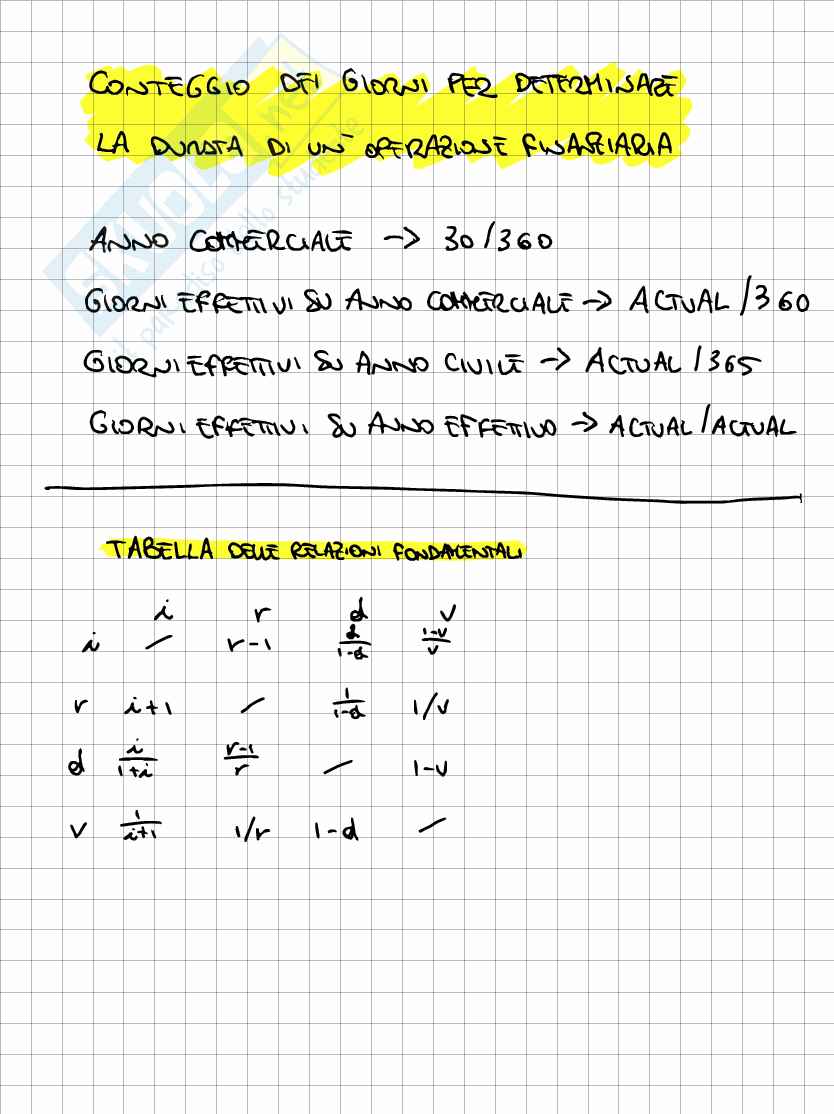 CONTEGGIO DEI GIORNI PER DETERMINARE
LA DURATA DI UN' OPERAZIONE FINANZIARIA
ANNO COMMERCIALE -> 30/360
GIORNI EFFETTIVI SU ANNO COMMERCIALE -> ACTUAL/360
GIORNI EFFETTIVI SU ANNO CIVILE -> ACTUAL/365
GIORNI EFFETTIVI SU ANNO EFFETTIVO -> ACTUAL/ACTUAL
TABELLA DELLE RELAZIONI FONDAMENTALI
i r d v
i / r-1 d/(1-d) (1-v)/v
r i+1 / 1/(1-d) 1/v
d i/(1+i) (r-1)/r / 1-v
v 1/(i+1) 1/r 1-d /